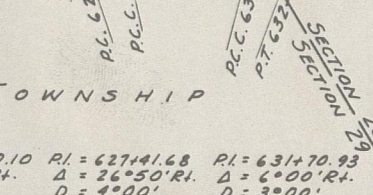 P.C. 62
P.C.C.
P.C.C. 63
P.T. 632
SECTION
SECTION 29
TOWNSHIP
.10 P.I. = 627+41.68 P.I. = 631+70.93
Rt. Δ = 26°50'Rt. Δ = 6°00'Rt.
D = 4°00' D = 3°00'